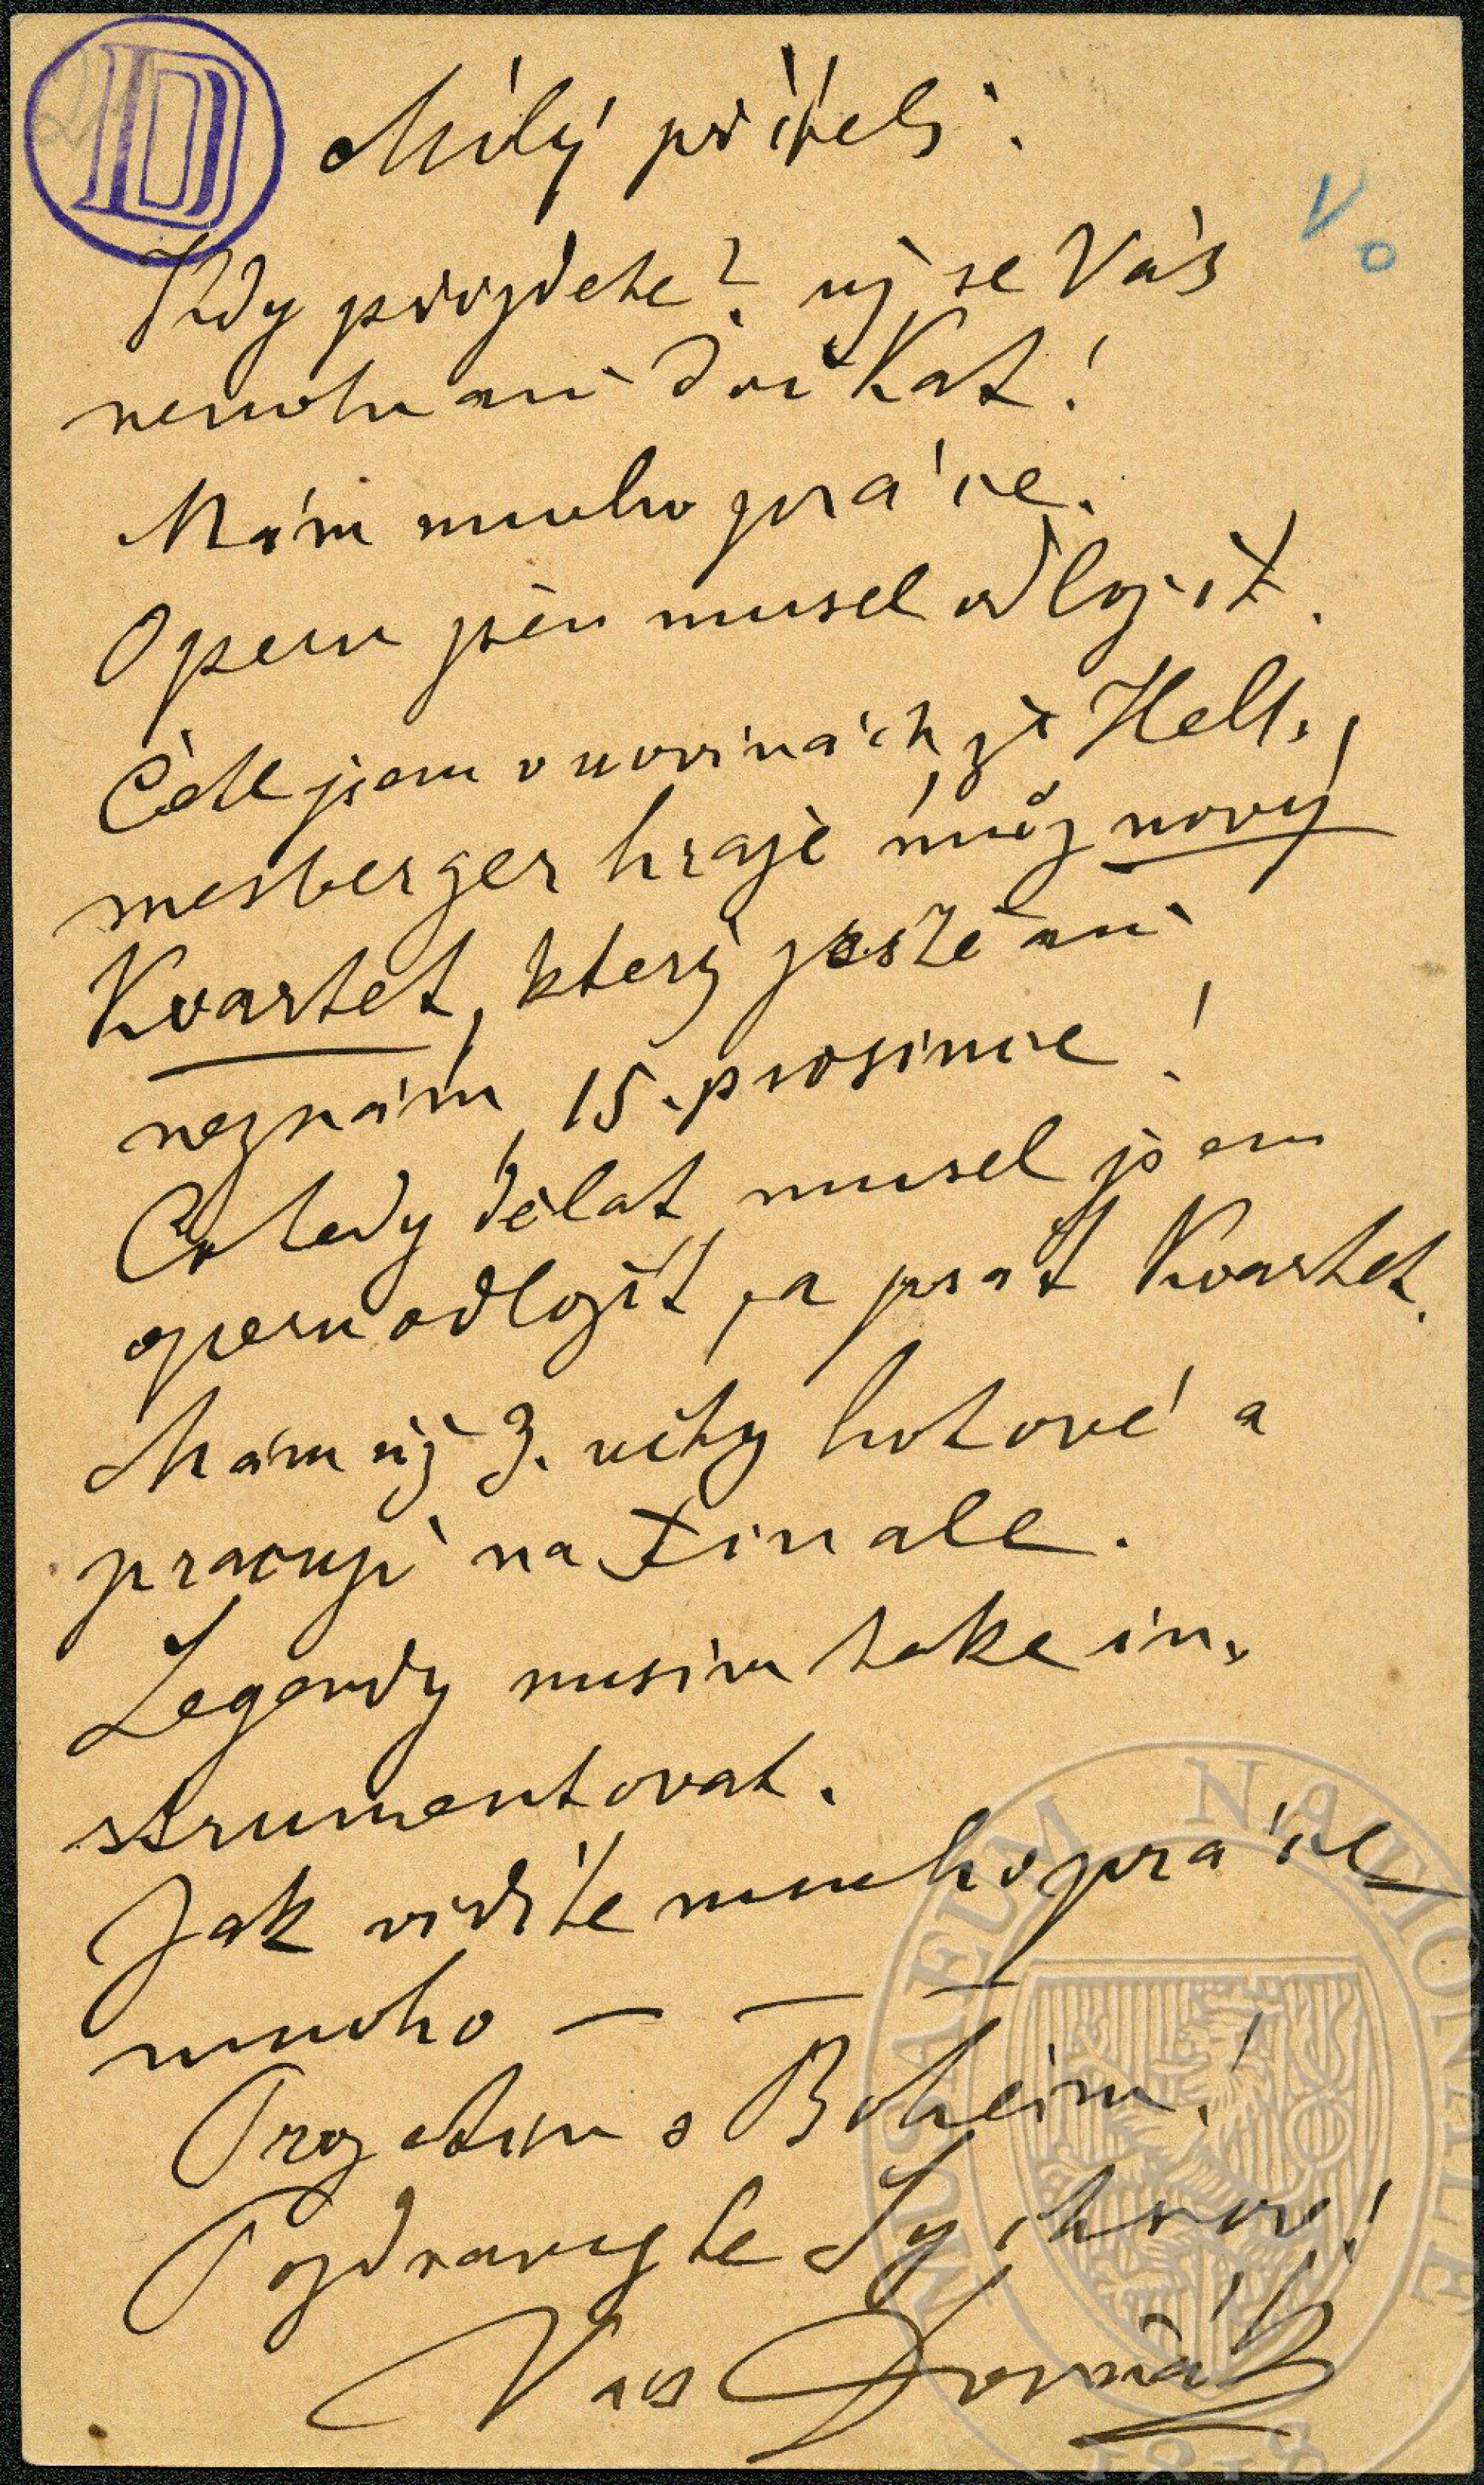 Milý příteli.
Kdy přijdete? už se Vás
nemohu ani dočkat!
Mám mnoho práce.
Operu jsem musel odložit.
Četl jsem v novinách, že Hell,,
mesberger hraje můj nový
Kvartet, který ještě ani
neznám, 15. prosince!
Co tedy dělat, musel jsem
operu odložit, a psát Kvartet.
Mám už 3. věty hotové a
pracuji na Finale.
Legendy musim take in,,
strumentovat.
Jak vidíte mnoho práce
mnoho — — —
Prozatim s Bohem!
Pozdravujte Sychrov!
Váš Dvořák
D
MUSAEUM NATIONALE
1818